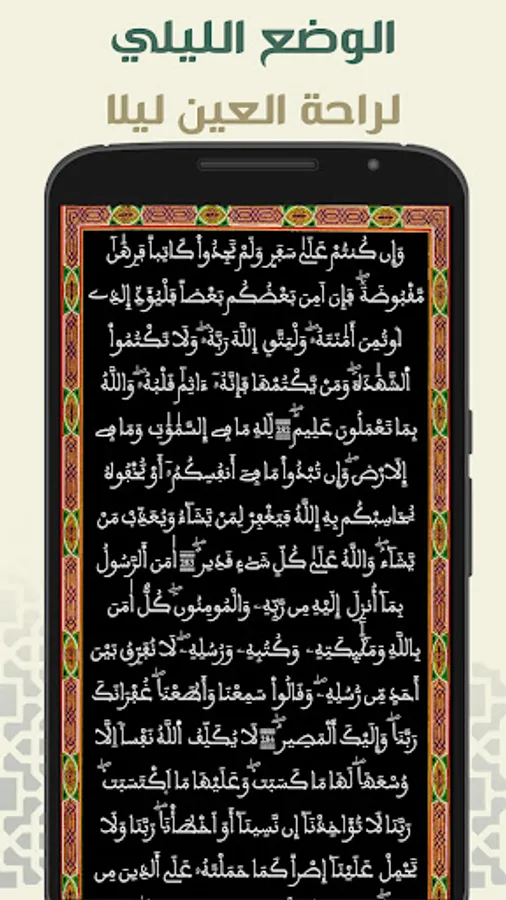 الوضع الليلي
لراحة العين ليلا
وَإِن كُنتُمْ عَلَىٰ سَفَرٍ وَلَمْ تَجِدُوا۟ كَاتِباً فَرِهَٰنٞ
مَّقْبُوضَةٞۖ فَإِنَ اَمِنَ بَعْضُكُم بَعْضاً فَلْيُؤَدِّ اِلذِے
اِ۟وتُمِنَ أَمَٰنَتَهُۥۖ وَلْيَتَّقِ اِللَّهَ رَبَّهُۥۖ وَلَا تَكْتُمُوا۟
اُ۟لشَّهَٰدَةَۖ وَمَنْ يَّكْتُمْهَا فَإِنَّهُۥٓ ءَاثِمٞ قَلْبُهُۥۖ وَاللَّهُ
بِمَا تَعْمَلُونَ عَلِيمٞۖ 282 لِّلهِ مَا فِے اِلسَّمَٰوَٰتِ وَمَا فِے
اِلَارْضِۖ وَإِن تُبْدُوا۟ مَا فِےٓ أَنفُسِكُمُۥٓ أَوْ تُخْفُوهُ
يُحَاسِبْكُم بِهِ اِللَّهُ فَيَغْفِرْ لِمَنْ يَّشَآءُ وَيُعَذِّب مَّنْ
يَّشَآءُۖ وَاللَّهُ عَلَىٰ كُلِّ شَےْءٖ قَدِيرٌۖ 283 اٰمَنَ اَلرَّسُولُ
بِمَآ أُنزِلَ إِلَيْهِ مِن رَّبِّهِۦ وَالْمُومِنُونَۖ كُلٌّ اٰمَنَ
بِاللَّهِ وَمَلَٰٓئِكَتِهِۦ وَكُتُبِهِۦ وَرُسُلِهِۦۖ لَا نُفَرِّقُ بَيْنَ
أَحَدٖ مِّن رُّسُلِهِۦۖ وَقَالُوا۟ سَمِعْنَا وَأَطَعْنَاۖ غُفْرَانَكَ
رَبَّنَاۖ وَإِلَيْكَ اَلْمَصِيرُۖ 284 لَا يُكَلِّفُ اُللَّهُ نَفْساً اِلَّا
وُسْعَهَاۖ لَهَا مَا كَسَبَتْۖ وَعَلَيْهَا مَا اَكْتَسَبَتْۖ
رَبَّنَا لَا تُؤَاخِذْنَآ إِن نَّسِينَآ أَوَ اَخْطَأْنَاۖ رَبَّنَا وَلَا
تَحْمِلْ عَلَيْنَآ إِصْراً كَمَا حَمَلْتَهُۥ عَلَى اَلذِينَ مِن